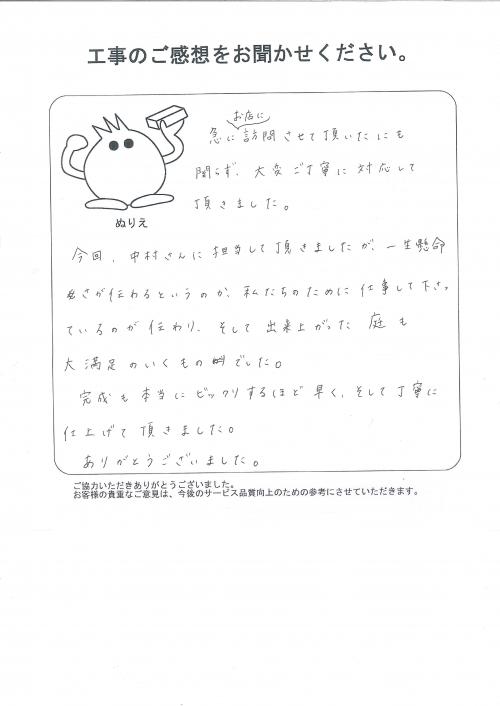 工事のご感想をお聞かせください。
お店に
急に訪問させて頂いたにも
関らず、大変ご丁寧に対応して
頂きました。
ぬりえ
今回、中村さんに担当して頂きましたが、一生懸命
さが伝わるというのか、私たちのために仕事して下さっ
ているのが伝わり、そして出来上がった庭も
大満足のいくものでした。
完成も本当にビックリするほど早く、そして丁寧に
仕上げて頂きました。
ありがとうございました。
ご協力いただきありがとうございました。
お客様の貴重なご意見は、今後のサービス品質向上のための参考にさせていただきます。